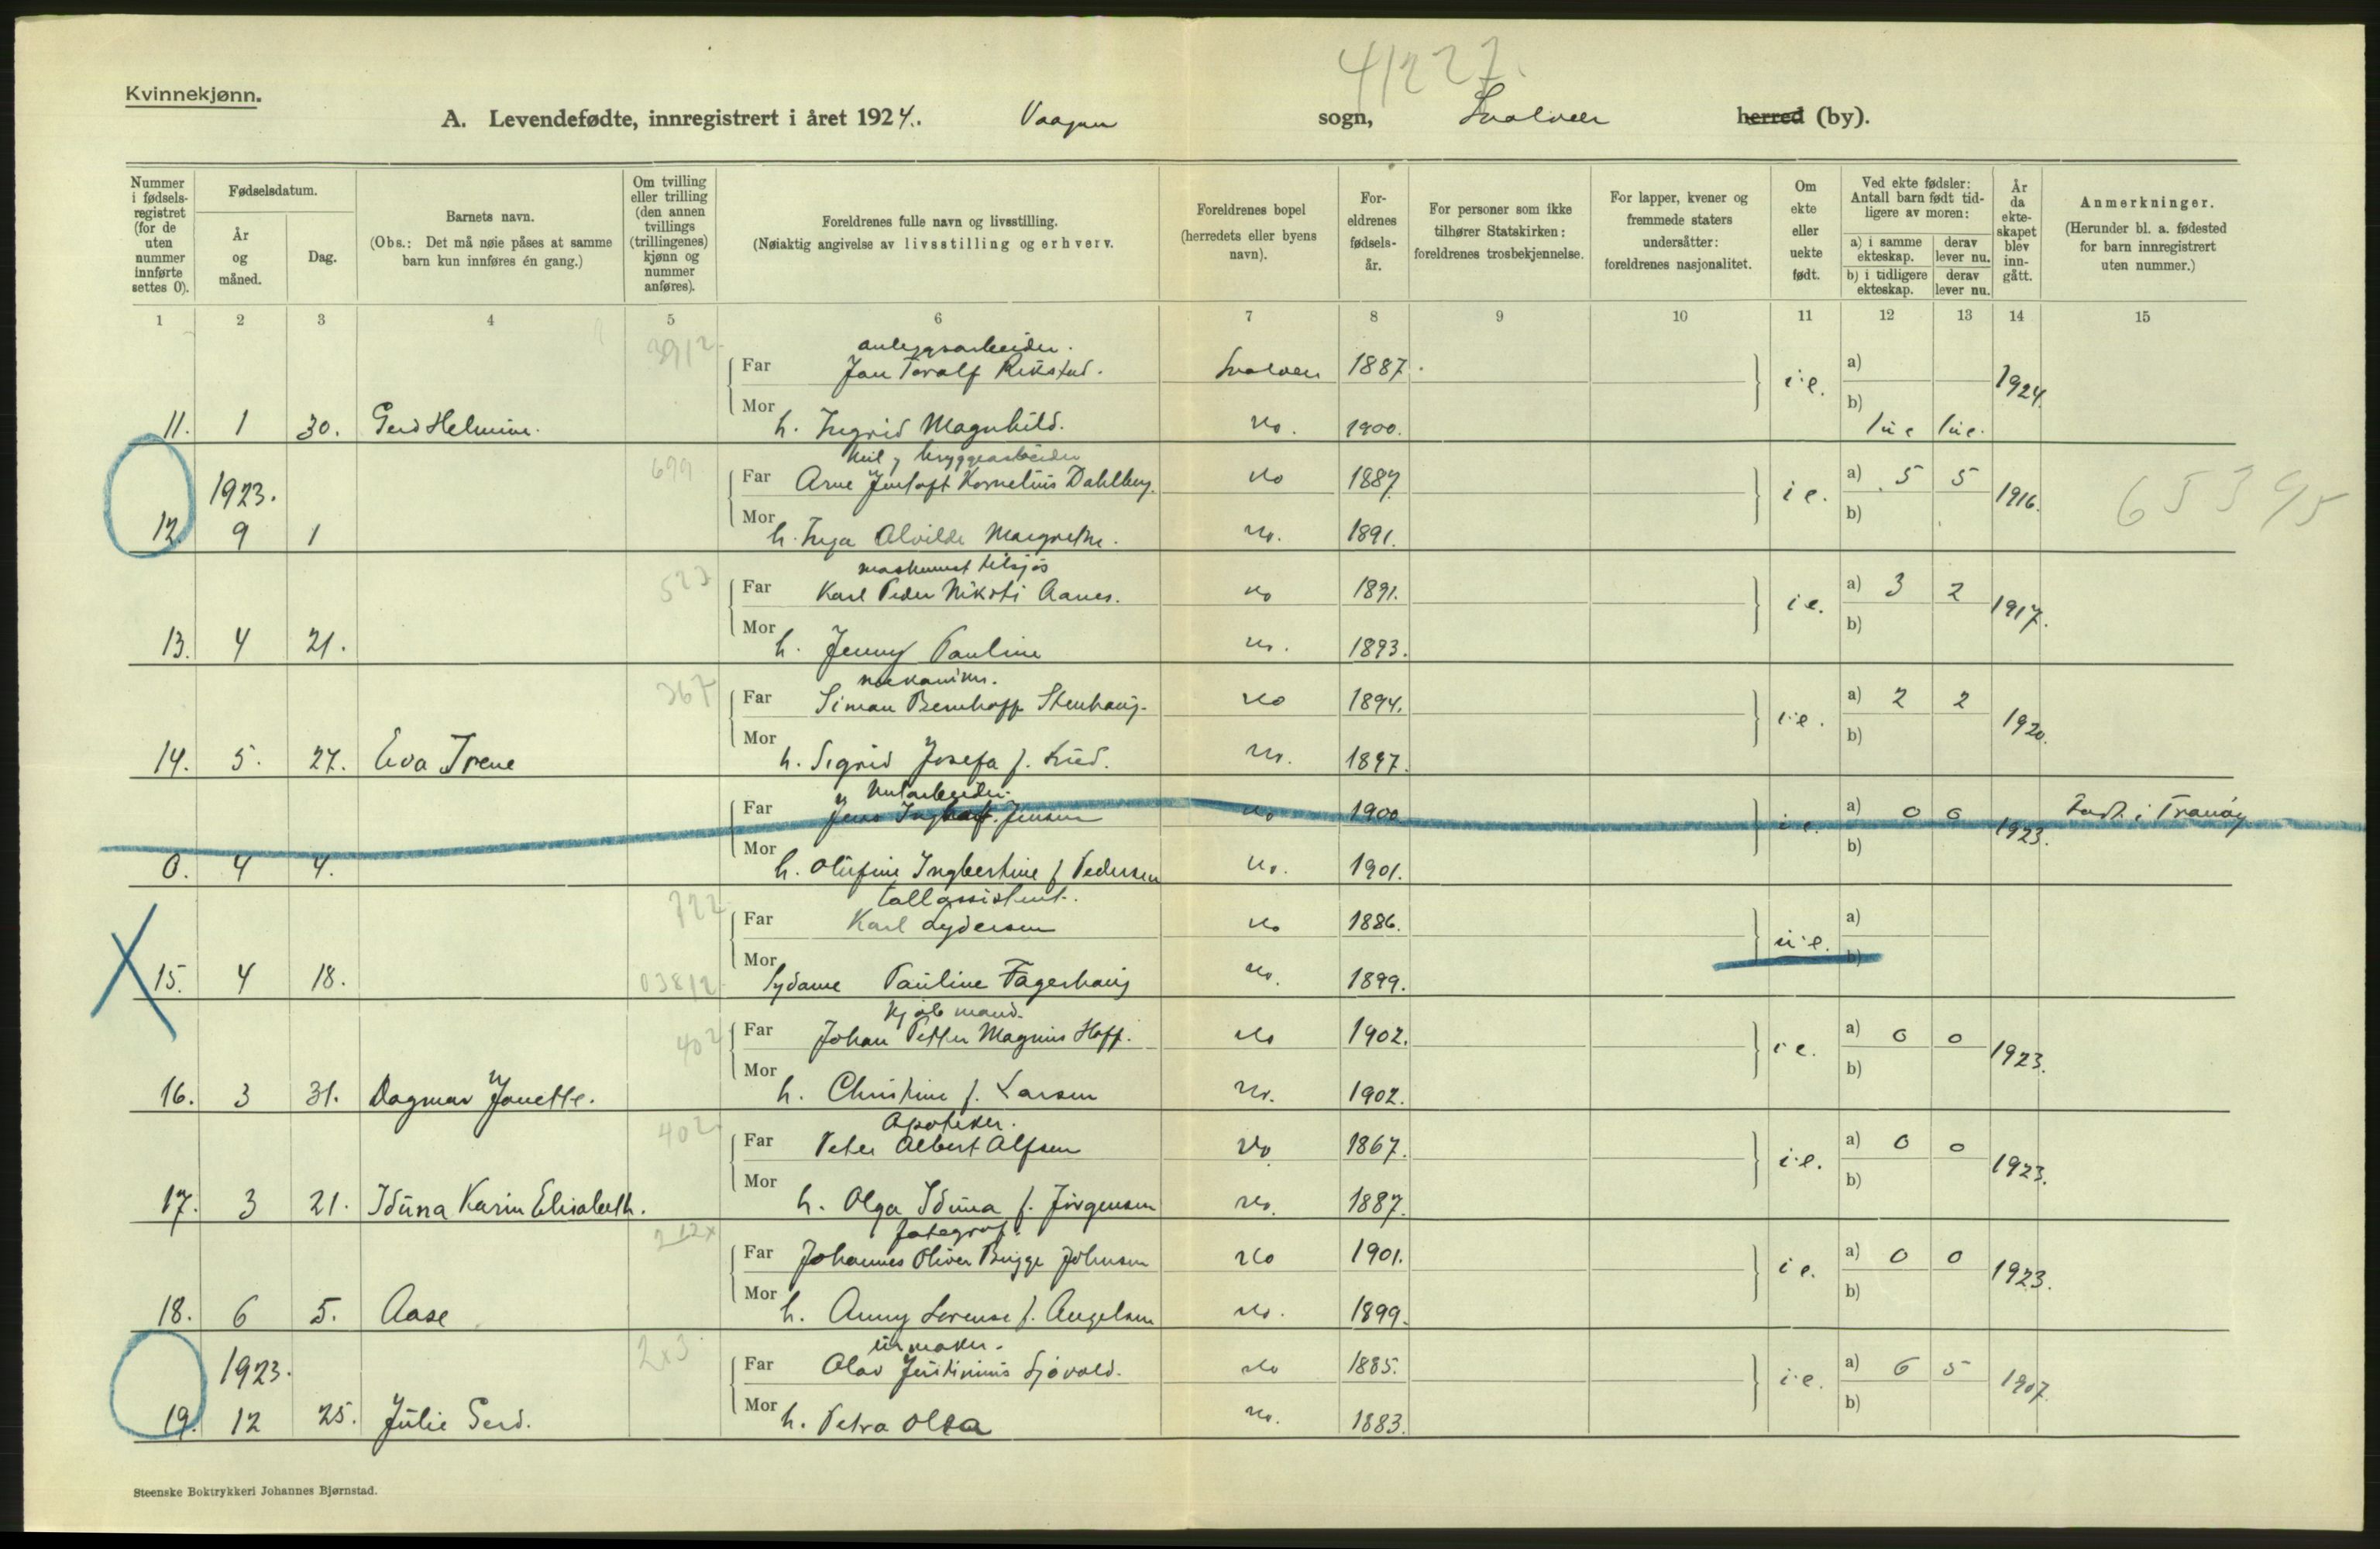 41227.
Kvinnekjønn.
A. Levendefødte, innregistrert i året 1924. Vaagan sogn, Svolvær herred (by).
Nummer i fødselsregistret (for de uten nummer innførte settes 0).
Fødselsdatum.
År og måned.
Dag.
Barnets navn.
(Obs.: Det må nøie påses at samme barn kun innføres én gang.)
Om tvilling eller trilling (den annen tvillings (trillingenes) kjønn og nummer anføres).
Foreldrenes fulle navn og livsstilling.
(Nøiaktig angivelse av livsstilling og erhverv.
Foreldrenes bopel (herredets eller byens navn).
Foreldrenes fødselsår.
For personer som ikke tilhører Statskirken: foreldrenes trosbekjennelse.
For lapper, kvener og fremmede staters undersåtter: foreldrenes nasjonalitet.
Om ekte eller uekte født.
Ved ekte fødsler: Antall barn født tidligere av moren:
a) i samme ekteskap.
derav lever nu.
b) i tidligere ekteskap.
derav lever nu.
År da ekteskapet blev inngått.
Anmerkninger.
(Herunder bl. a. fødested for barn innregistrert uten nummer.)
1 2 3 4 5 6 7 8 9 10 11 12 13 14 15
anleggsarbeider.
Far Jan Toralf Rikstad. Svolvær 1887. i.e. a) 1924.
11. 1 30. Gerd Helmine. Mor h. Ingrid Magnhild. do. 1900. b)
699
kul og bryggearbeider
1923. Far Arne Kornelius Dahlberg. do 1887 i e. a) 5 5 1916. 65395
12. 9 1 Mor h. Inga Alvilde Margrethe. do. 1891. b)
523
maskinist tilsjøs
Far Karl Peder Nikoti Aanes. do 1891. i e. a) 3 2 1917.
13. 4 21. Mor h. Jenny Pauline do. 1893. b)
367
mekaniker.
Far Simon Bernhoff Stenhaug. do 1894. i.e. a) 2 2 1920.
14. 5. 27. Eva Irene Mor h. Sigrid Josefa f. Lied. do. 1897. b)
Far Jens Jensen do 1900 i e. a) 0 0 1923. født i Tranøy
0. 4 4. Mor h. Olufine Ingbertine f Pedersen do. 1901. b)
722
tollassistent.
Far Karl Lydersen do 1886. u.e. a)
15. 4 18. 03812 Mor Sydame Pauline Fagerhaug do. 1899. b)
402
Kjøbmand.
Far Johan Petter Magnus Hoff. do 1902. i e. a) 0 0 1923.
16. 3 31. Dagmar Janette. Mor h. Christine f. Larsen do. 1902. b)
402
Apoteker.
Far Peter Albert Alfsen do 1867. i.e. a) 0 0 1923.
17. 3 21. Iduna Karin Elisabeth. Mor h. Olga Iduna f. Jørgensen do. 1887. b)
212x
fotograf.
Far Johannes Oliver Brigge Johnsen do 1901. i e. a) 0 0 1923.
18. 6 5. Aase Mor h. Anny Lorense f. Angelsen do. 1899. b)
2x3
urmaker.
1923. Far Olav Justinius Sjøvold. do 1885. i.e. a) 6 5 1907.
19. 12 25. Julie Gerd. Mor h. Petra Olea do. 1883. b)
Steenske Boktrykkeri Johannes Bjørnstad.